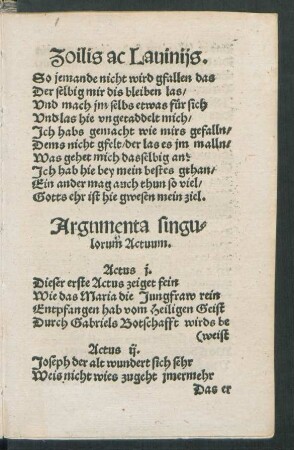 Zoilis ac Lauinijs.
So jemande nicht wird gfallen das
Der selbig mir dis bleiben las/
Vnd mach jm selbs etwas für sich
Vnd las hie vngetaddelt mich/
Ich habs gemacht wie mirs gefalln/
Dems nicht gfelt/der las es jm malln/
Was gehet mich dasselbig an?
Ich hab hie bey mein bestes gthan/
Ein ander mag auch thun so viel/
Gotts ehr ist hie gwesen mein ziel.
Argumenta singu-
lorum Actuum.
Actus j.
Dieser erste Actus zeiget fein
Wie das Maria die Jungfraw rein
Entpfangen hab vom Heiligen Geist
Durch Gabriels Botschafft wirds be
(weist
Actus ij.
Joseph der alt wundert sich sehr
Weis nicht wies zugeht jmermehr
Das er